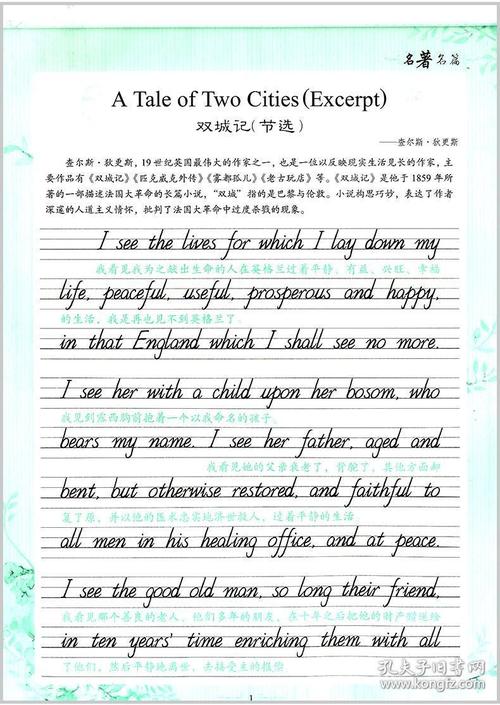 名著名篇
A Tale of Two Cities (Excerpt)
双城记(节选)
——查尔斯·狄更斯
查尔斯·狄更斯,19世纪英国最伟大的作家之一,也是一位以反映现实生活见长的作家,主
要作品有《双城记》《匹克威克外传》《雾都孤儿》《老古玩店》等。《双城记》是他于1859年所
著的一部描述法国大革命的长篇小说,“双城”指的是巴黎与伦敦。小说构思巧妙,表达了作者
深邃的人道主义情怀,批判了法国大革命中过度杀戮的现象。
I see the lives for which I lay down my
我看见我为之献出生命的人在英格兰过着平静、有益、兴旺、幸福
life, peaceful, useful, prosperous and happy,
的生活,我是再也见不到英格兰了。
in that England which I shall see no more.
I see her with a child upon her bosom, who
我见到露西胸前抱着一个以我命名的孩子。
bears my name. I see her father, aged and
我看见她的父亲衰老了,背驼了,其他方面却
bent, but otherwise restored, and faithful to
复了原,并以他的医术忠实地济世救人,过着平静的生活
all men in his healing office, and at peace.
I see the good old man, so long their friend,
我看见那个善良的老人,他们多年的朋友,在十年之后把他的财产赠送给
in ten years' time enriching them with all
了他们,然后平静地离世,去接受主的报偿
1
孔夫子旧书网
www.kongfz.com